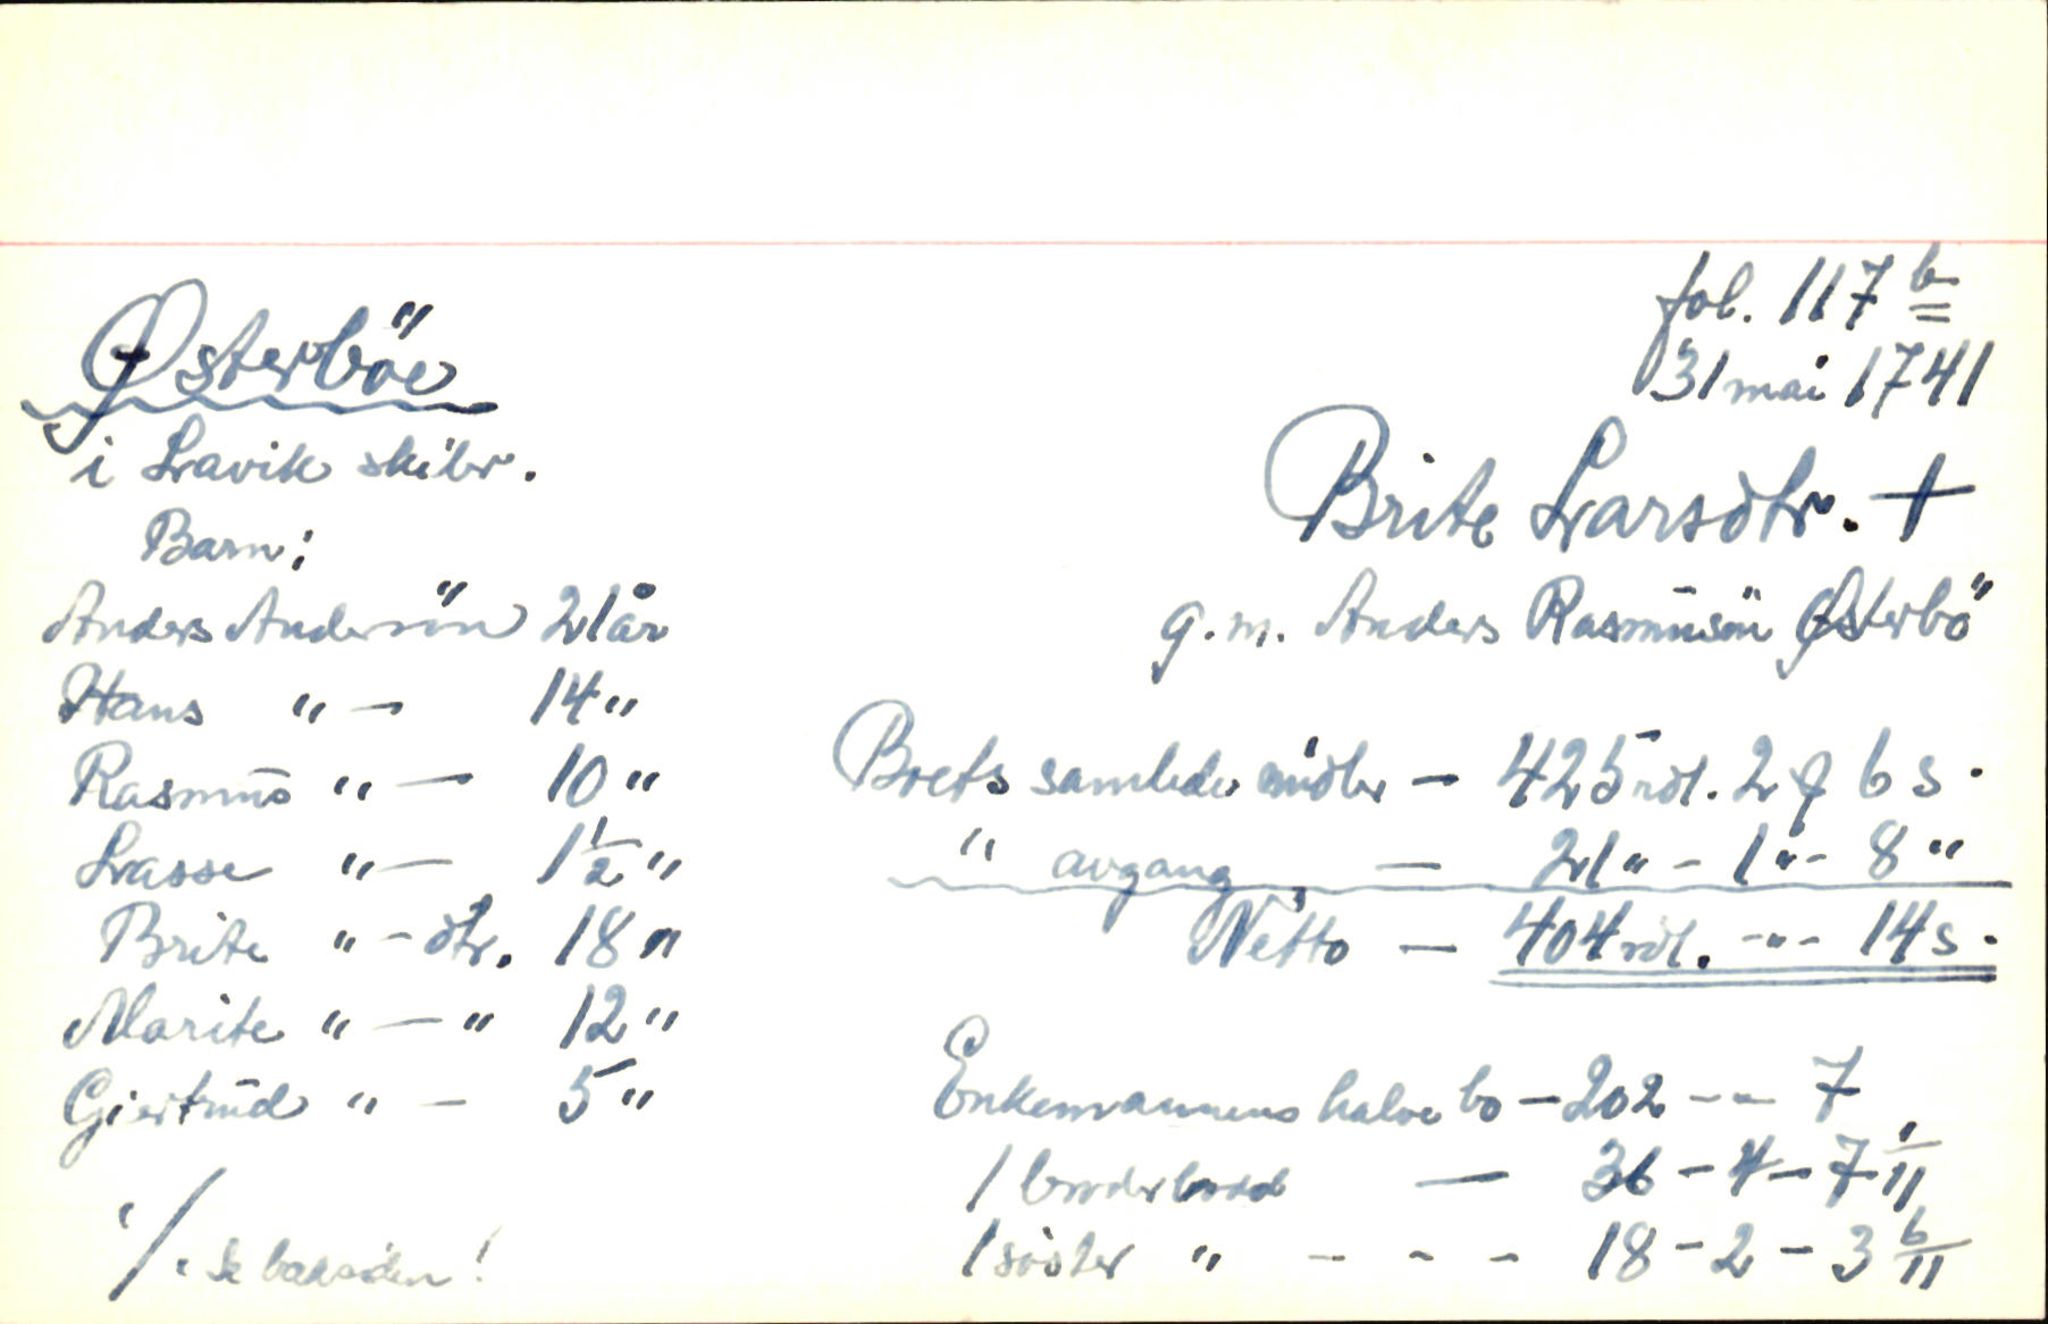 Østerböe
i Lavik skibr.
Barn:
Anders Andersön 21 år
Hans " - 14 "
Rasmus " - 10 "
Lasse " - 1½ "
Brite " - dtr. 18 "
Marite " - " 12 "
Giertrud " - 5 "
·/· se baksiden!
fol. 117 b
31 mai 1741
Brite Larsdtr. +
g. m. Anders Rasmusön Østerbö
Boets samlede midler - 425 rdl. 2 ƒ 6 s.
" avgang - 21 " - 1 " - 8 "
Netto - 404 rdl. -"- 14 s.
Enkemannens halve bo - 202 -- 7
1 broderlodd - 36 - 4 - 7 1/11
1 söster " - - - 18 - 2 - 3 6/11